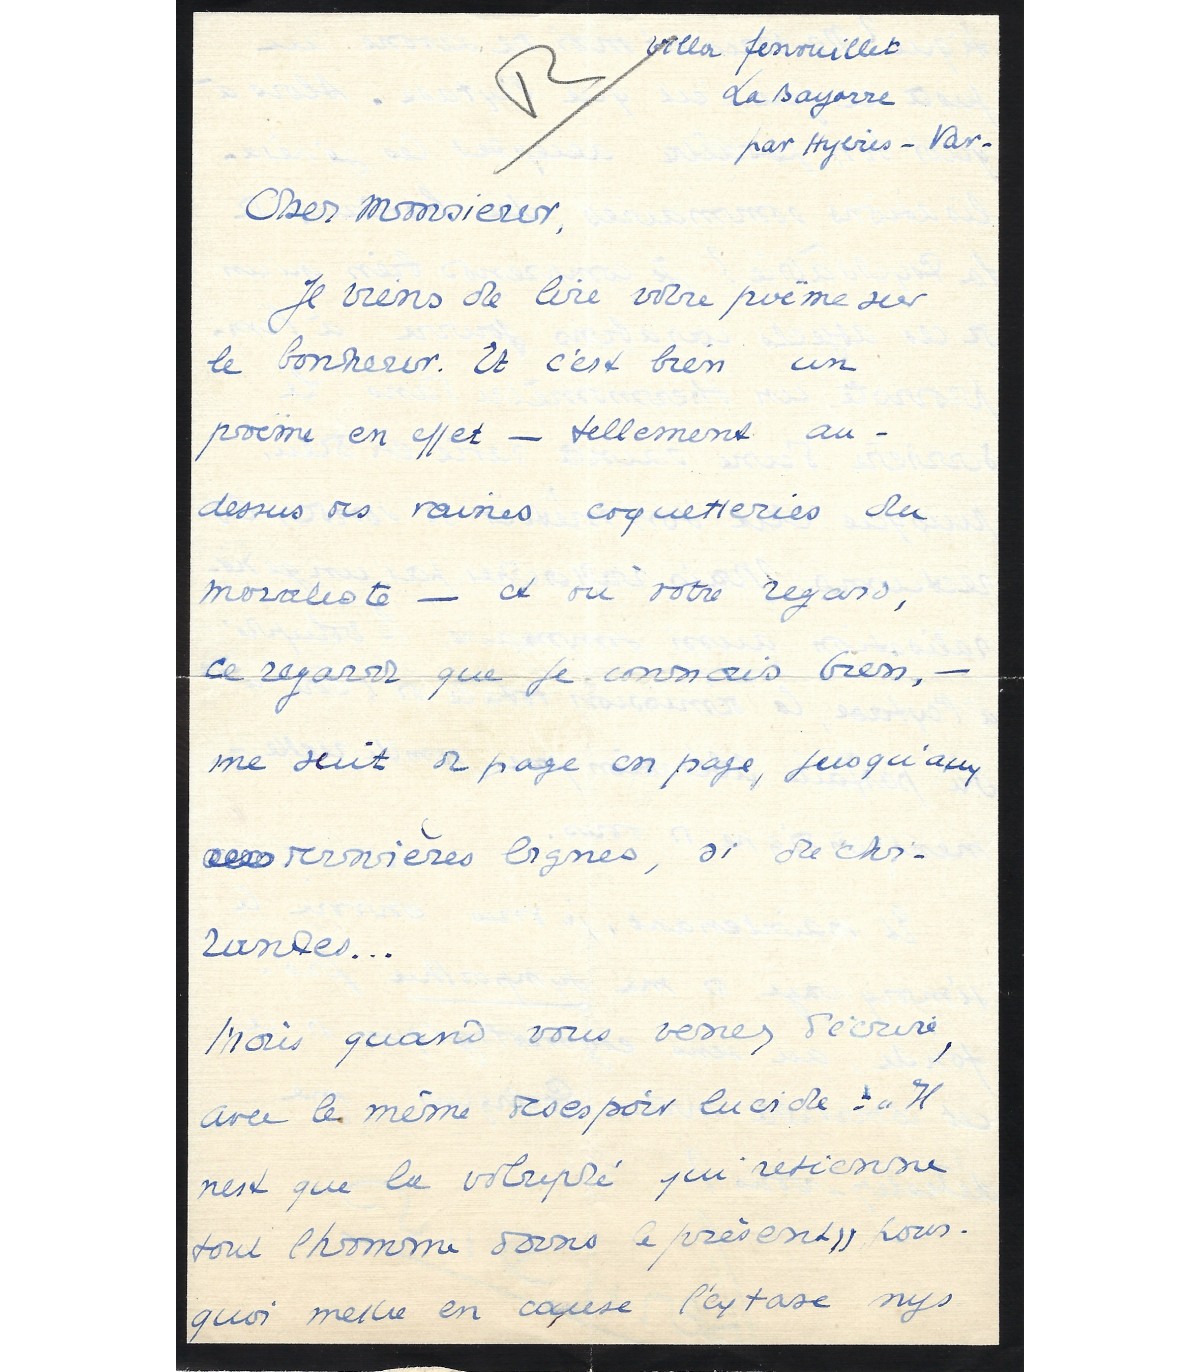 R
Villa fenouillet
La Bayorre
par Hyères - Var -
Cher Monsieur,
Je viens de lire votre poëme sur
le bonheur. Et c'est bien un
poëme en effet — tellement au-
dessus des vaines coquetteries du
moraliste — et où votre regard,
ce regard que je connais bien, —
me suit de page en page, jusqu'aux
dernières lignes, si déchi-
rantes...
Mais quand vous venez d'écrire,
avec le même désespoir lucide : "Il
n'est que la volupté qui retienne
tout l'homme dans le présent" pour-
quoi mettre en cause l'extase mys